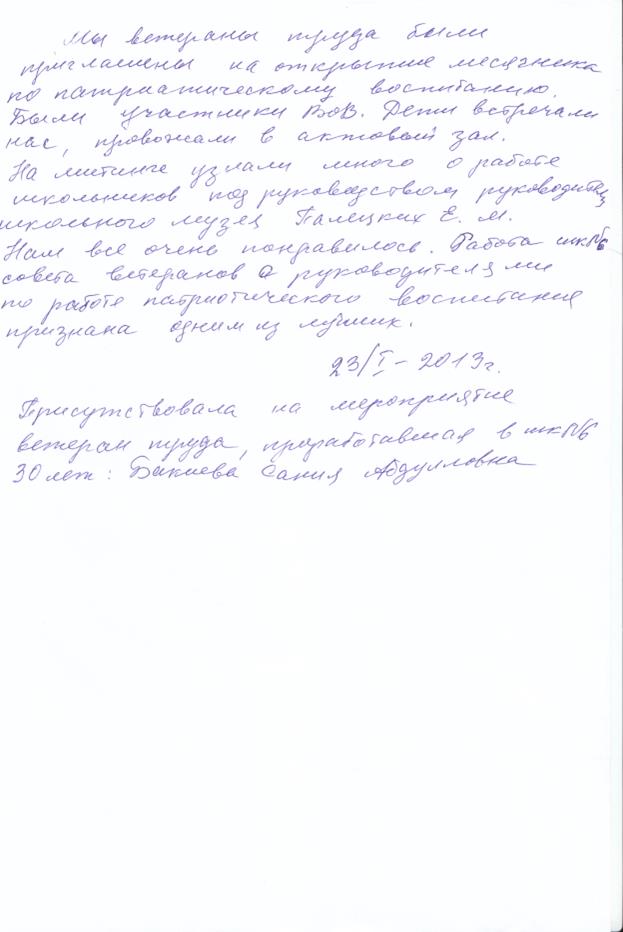 Мы ветераны труда были
приглашены на открытие месячника
по патриатическому воспитанию.
Были участники ВоВ. Дети встречали
нас, провожали в актовый зал.
На митинге узнали много о работе
школьников под руководством руководителя
школьного музея Палецких Е. М.
Нам всё очень понравилось. Работа шк№6
совета ветеранов с руководителями
по работе патриотического воспитания
признана одним из лучших.
23/I – 2013г.
Присутствовала на мероприятие
ветеран труда, проработавшая в шк№6
30 лет: Бикиева Сания Абдулловна